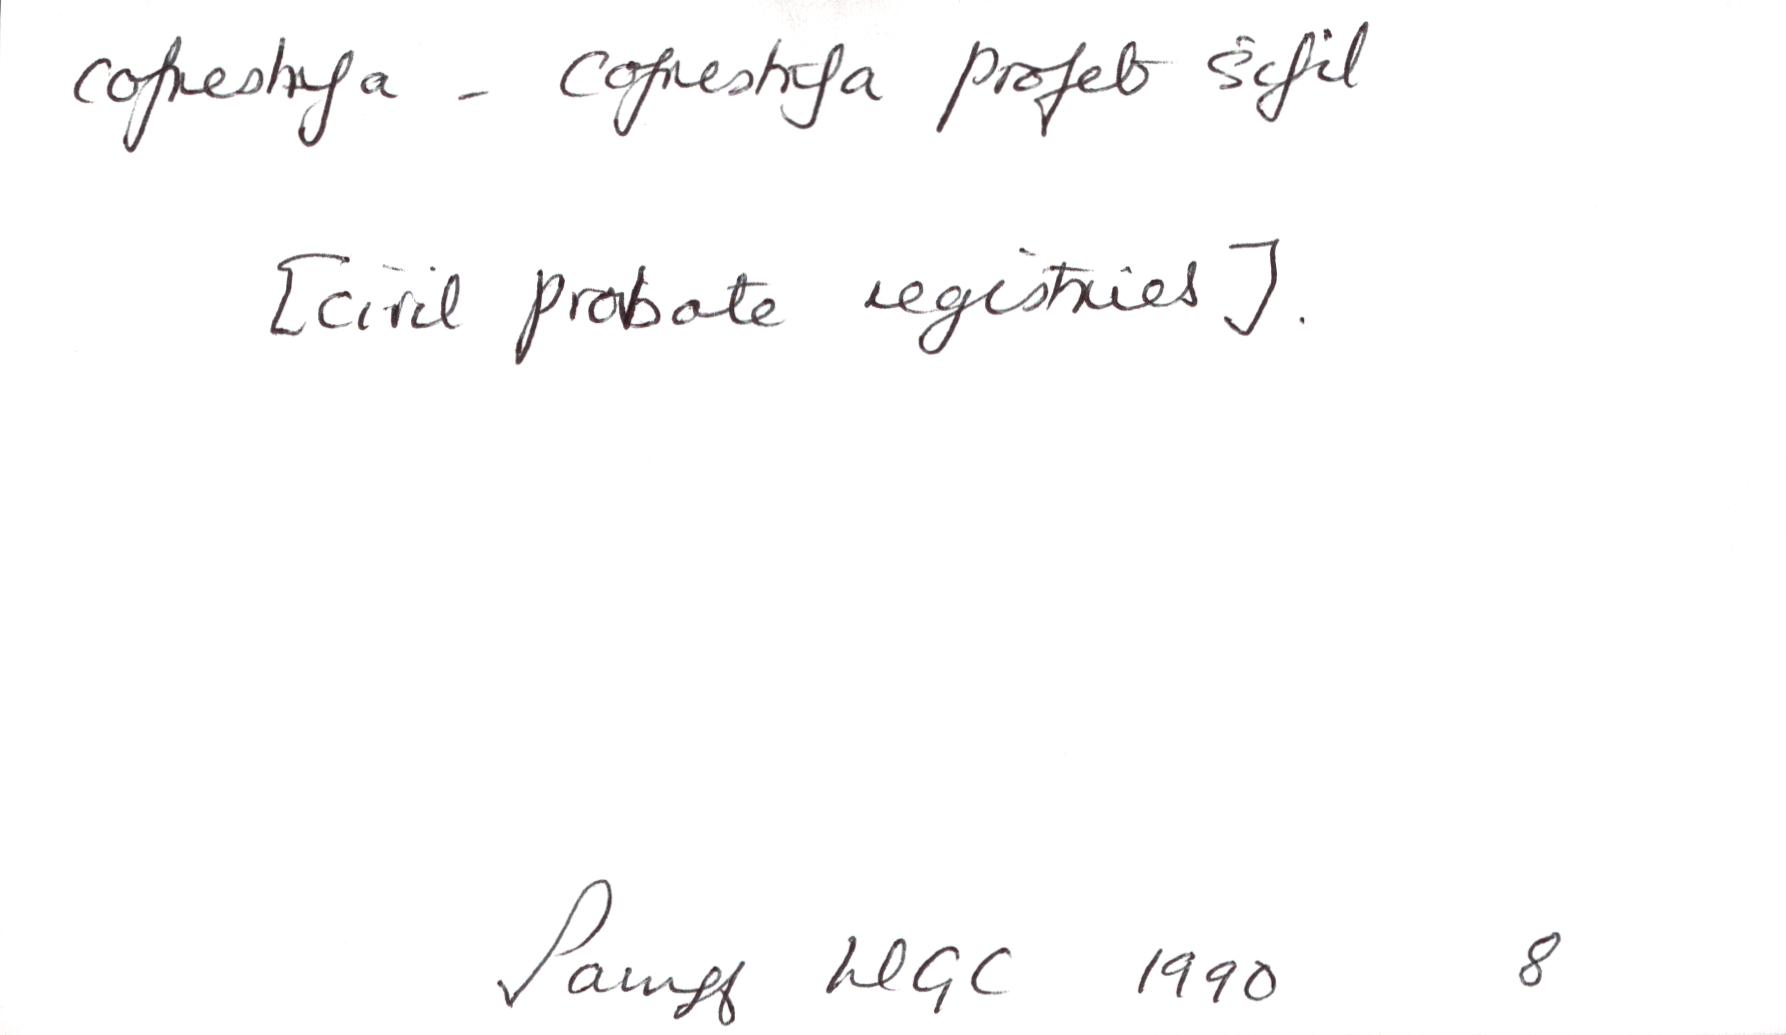 cofrestrfa - cofrestrfa profeb sifil
[civil probate registries].
Pamff LlGC 1990 8